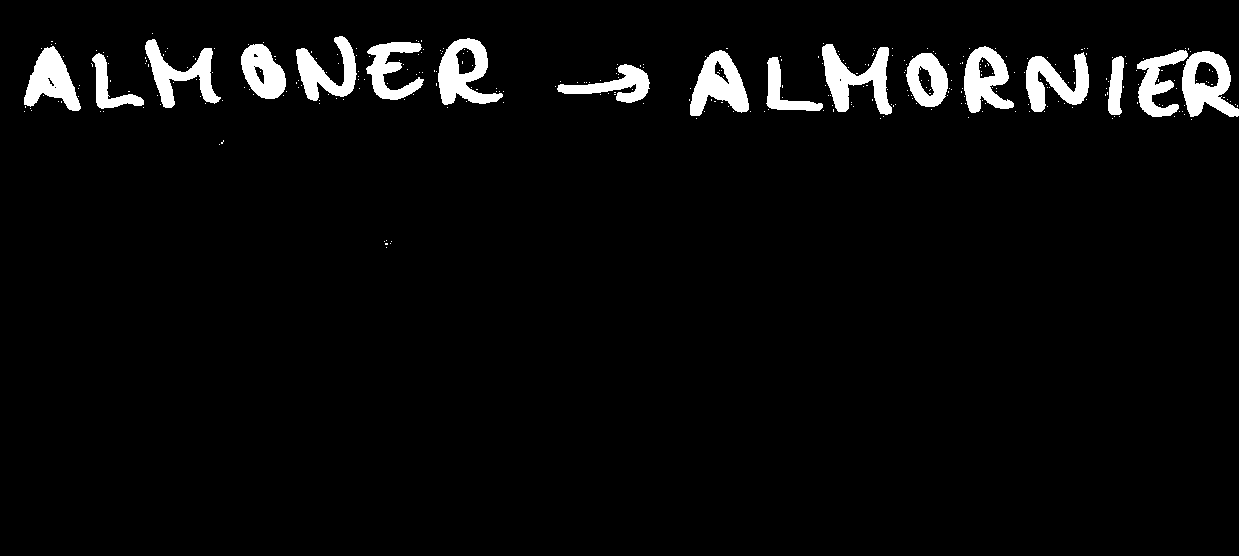 ALMONER → ALMORNIER